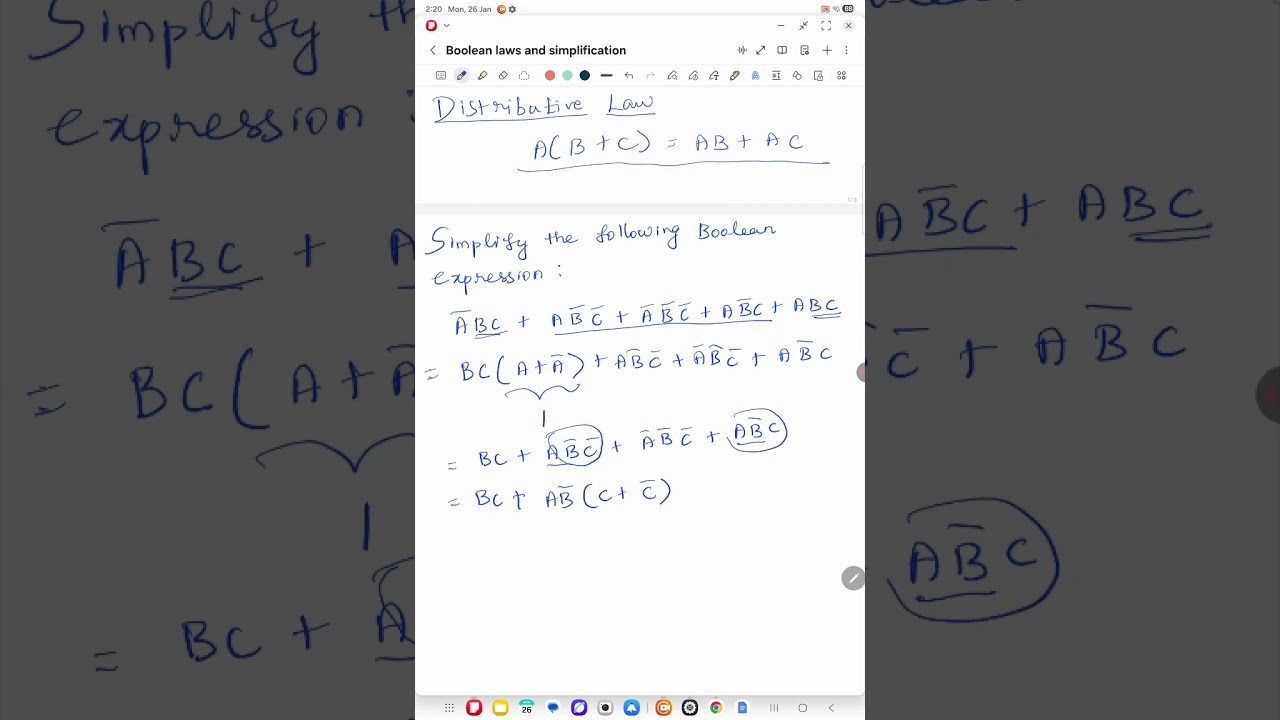 2:20 Mon, 26 Jan
Boolean laws and simplification
Distributive Law
A(B+C) = AB + AC
1/3
Simplify the following Boolean
expression :
A̅BC + AB̅C̅ + A̅B̅C̅ + AB̅C + ABC
= BC(A+A̅) + AB̅C̅ + A̅B̅C̅ + AB̅C
1
= BC + AB̅C̅ + A̅B̅C̅ + AB̅C
= BC + AB̅(C + C̅)
26